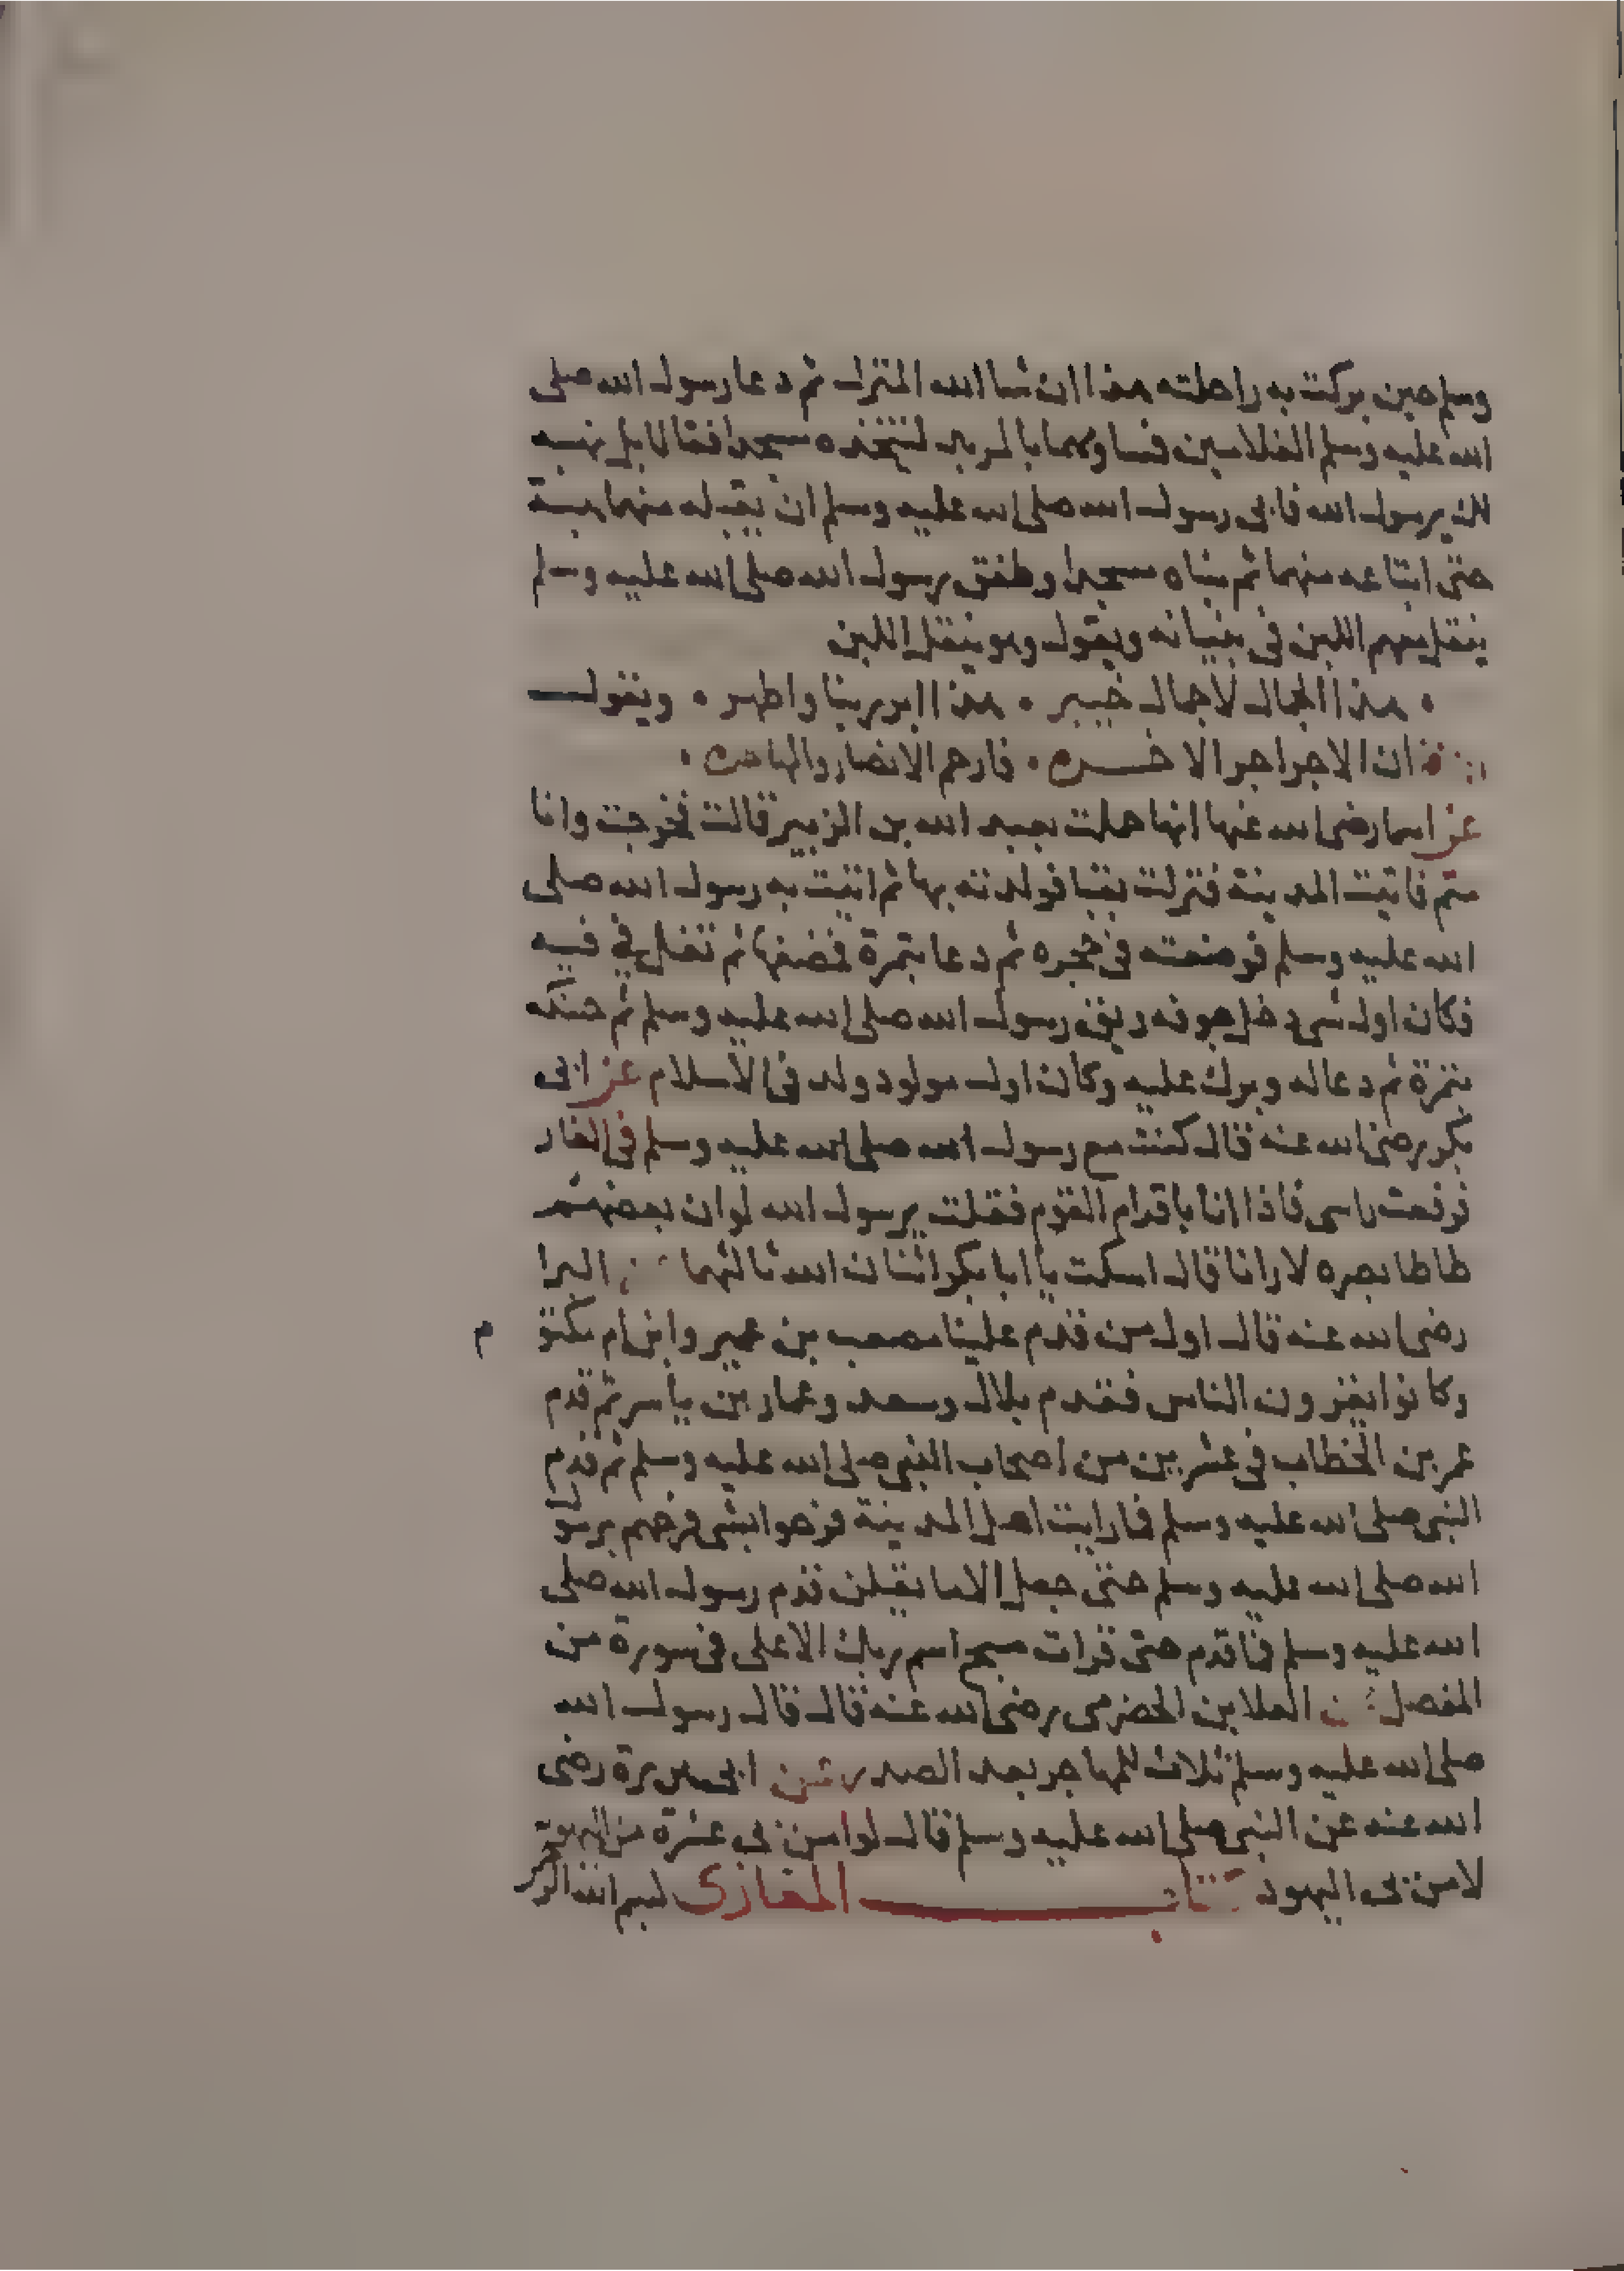 وسلم حين بركت به راحلته هذا ان شا الله المنزل ثم دعا رسول الله صلى
الله عليه وسلم الغلامين فساومهما بالمربد لنتخذه مسجدا فقالا بل نهبه
لك يرسول الله فابى رسول الله صلى الله عليه وسلم ان يقبله منهما هبة
حتى ابتاعه منهما ثم بناه مسجدا وطفق رسول الله صلى الله عليه وسلم
ينقل معهم اللبن في بنيانه ويقول وهو ينقل اللبن
هذا الحمال لا حمال خيبر • هذا ابر ربنا واطهر • ويقول
ان الاجر اجر الاخره • فارحم الانصار والمهاجره •
عن اسما رضى الله عنها انها حملت بعبد الله بن الزبير قالت فخرجت وانا
متم فاتيت المدينة فنزلت بقبا فولدته بها ثم اتيت به رسول الله صلى
الله عليه وسلم فوضعته في حجره ثم دعا بتمرة فمضغها ثم تفل في فيه
فكان اول شى دخل جوفه ريق رسول الله صلى الله عليه وسلم ثم حنكه
بتمرة ثم دعا له وبرك عليه وكان اول مولود ولد في الاسلام عن ابى
بكر رضى الله عنه قال كنت مع رسول الله صلى الله عليه وسلم في الغار
فرفعت راسى فاذا انا باقدام القوم فقلت يرسول الله لو ان بعضهم
طاطا بصره لارانا قال اسكت يا ابا بكر اثنان الله ثالثهما عن البرا
رضى الله عنه قال اول من قدم علينا مصعب بن عمير وابن ام مكتوم
وكانوا يقرون الناس فقدم بلال وسعد وعمار بن ياسر ثم قدم
عمر بن الخطاب في عشرين من اصحاب النبى صلى الله عليه وسلم ثم قدم
النبى صلى الله عليه وسلم فما رايت اهل المدينة فرحوا بشى فرحهم برسول
الله صلى الله عليه وسلم حتى جعل الاما يقلن قدم رسول الله صلى
الله عليه وسلم فما قدم حتى قرات سبح اسم ربك الاعلى في سورة من
المفصل عن العلا بن الحضرمى رضى الله عنه قال قال رسول الله
صلى الله عليه وسلم ثلاث للمهاجر بعد الصدر عن ابى هريرة رضى
الله عنه عن النبى صلى الله عليه وسلم قال لو امن بى عشرة من اليهود
لامن بى اليهود كتاب المغازى بسم الله الر